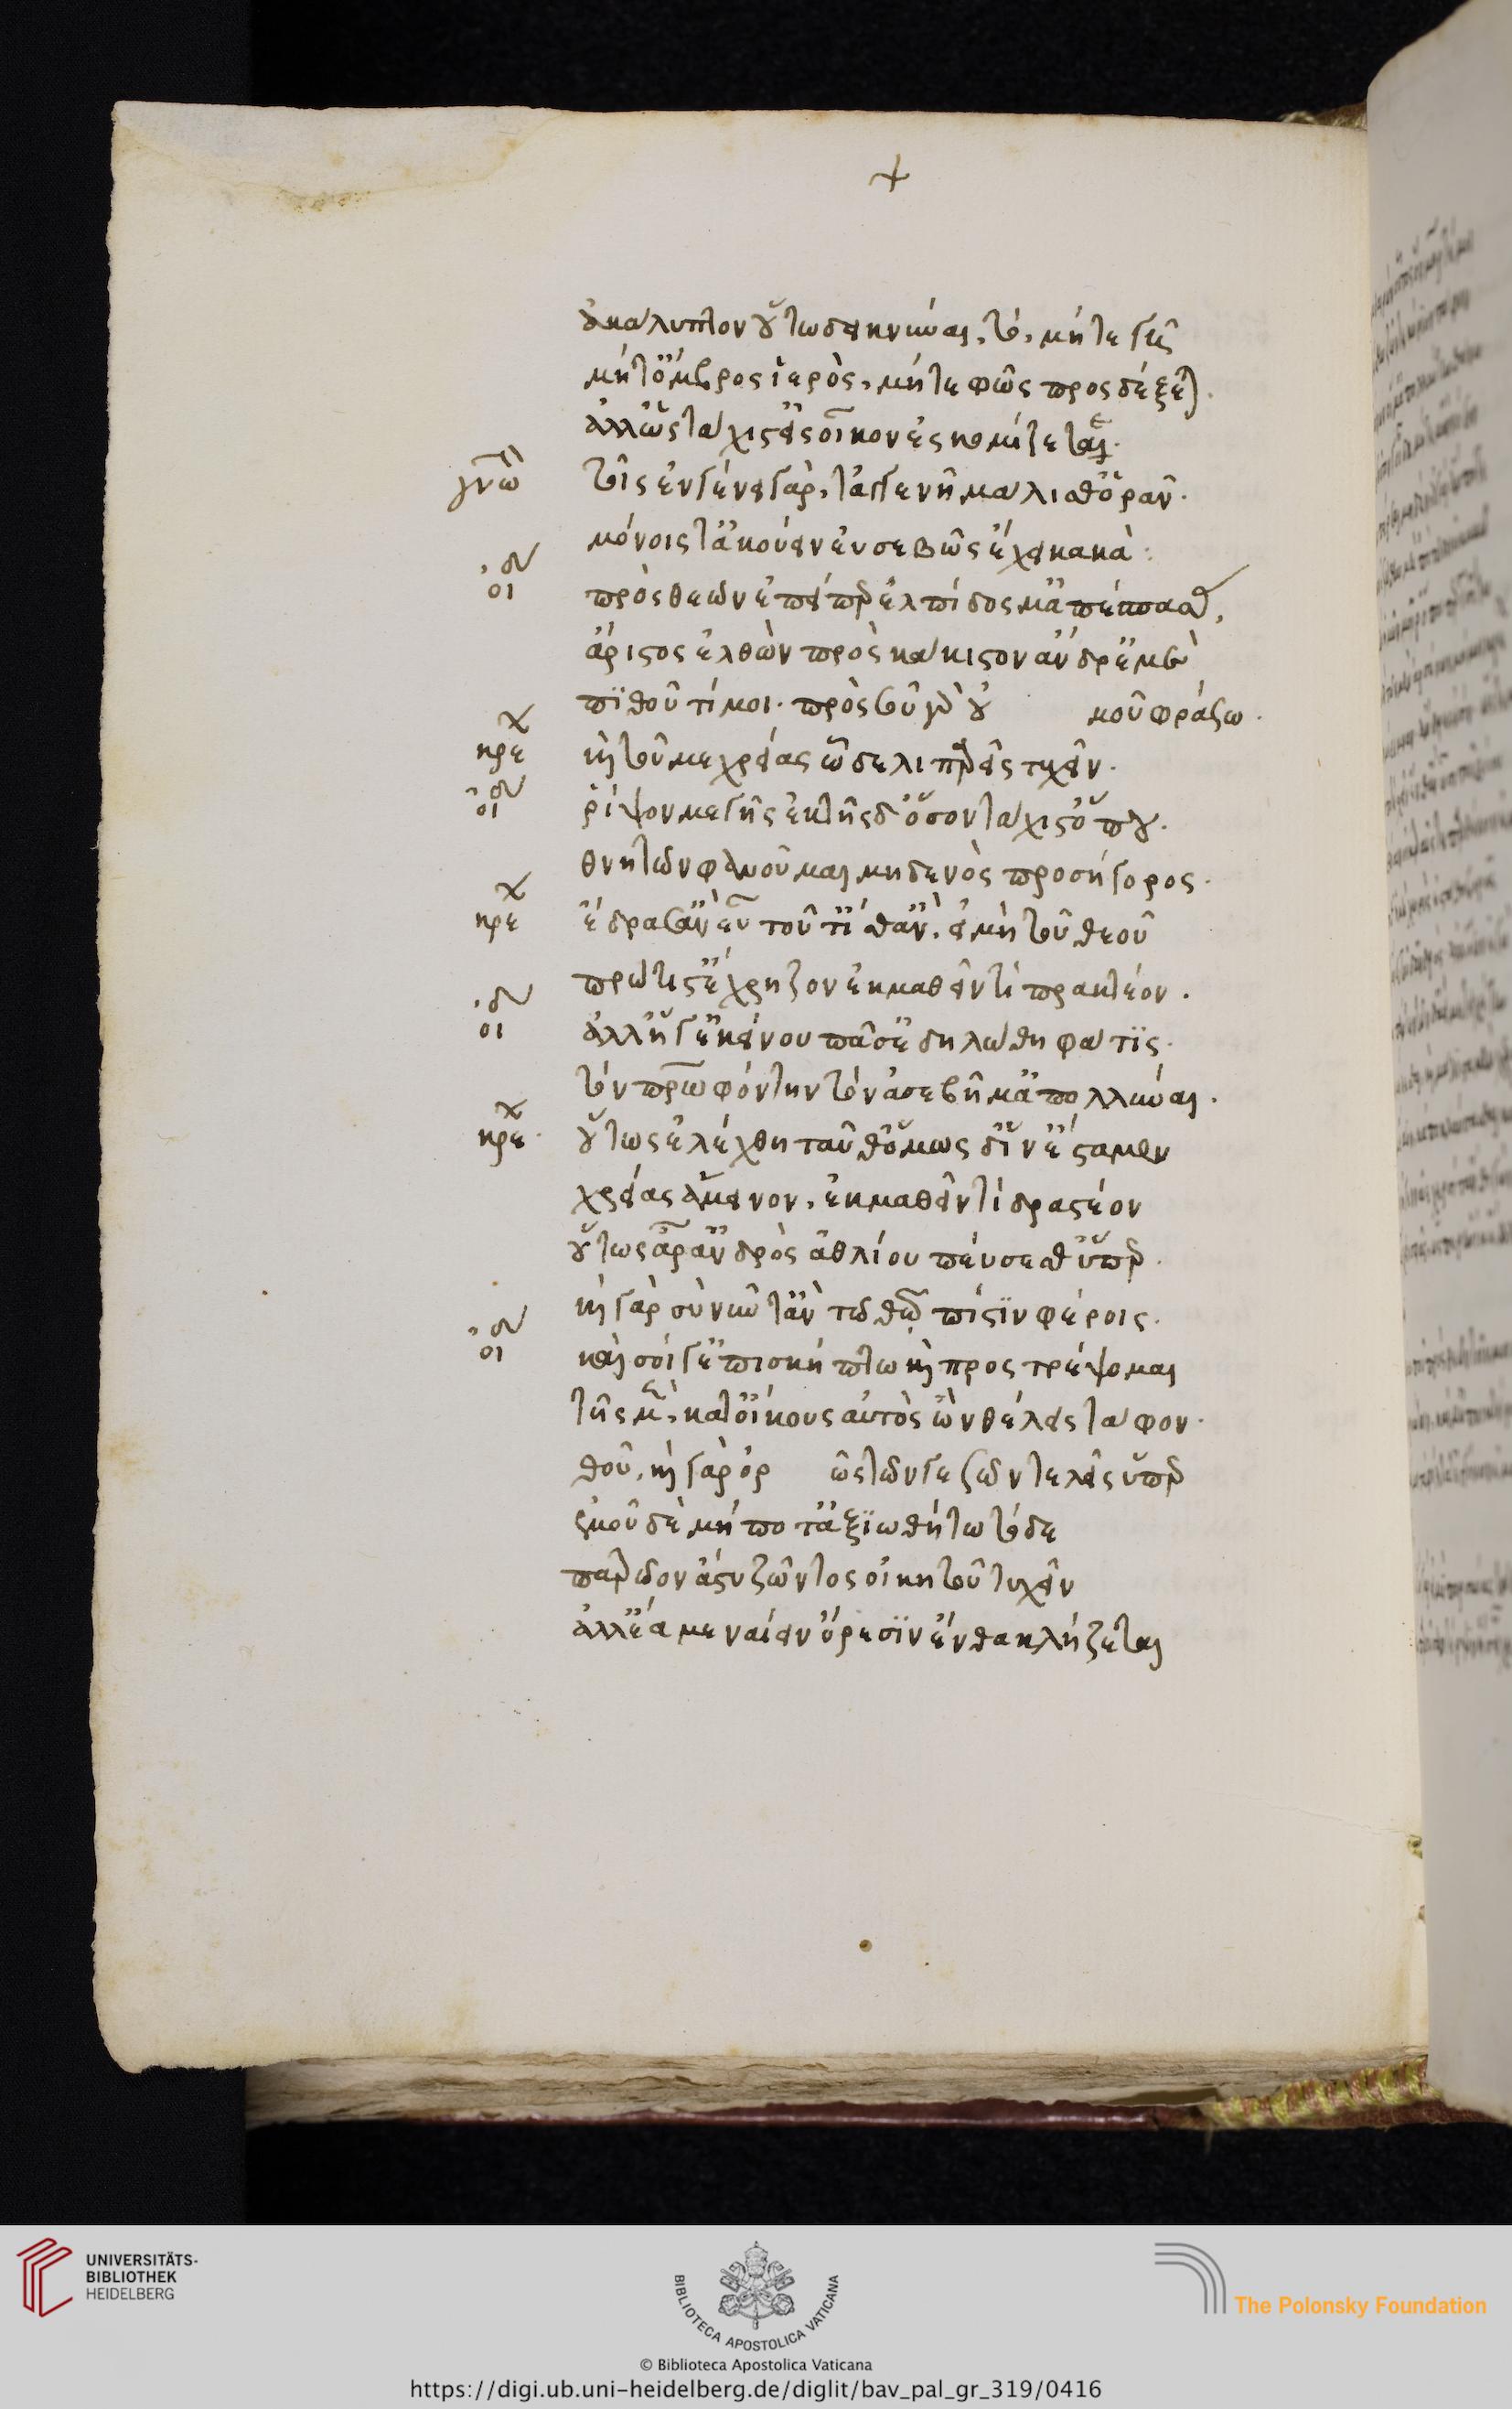 +
ἀκάλυπτον οὕτω δεικνύναι, τό, μήτε γῆ
μήτ' ὄμβρος ἱερὸς, μήτε φῶς προσδέξεται.
ἀλλ' ὡς τάχιστ' ἐς οἶκον ἐσκομίζεται.
γνώ τοῖς ἐν γένει γὰρ, τἀγγενῆ μάλισθ' ὁρᾶν.
μόνοις τ' ἀκούειν εὐσεβῶς ἔχει κακά:
οἰδ πρὸς θεῶν ἐπείπερ ἐλπίδος μ' ἀπέσπασας,
ἄριστος ἐλθὼν πρὸς κάκιστον ἄνδρ' ἐμὲ
πιθοῦ τί μοι. πρὸς σοῦ γὰρ οὐ μοῦ φράσω.
κρε καὶ τοῦ με χρείας ὧδε λιπαρεῖς τυχεῖν.
οἰδ ῥίψον με γῆς ἐκ τῆσδ' ὅσον τάχισθ' ὅπου.
θνητῶν φανοῦμαι μηδενὸς προσήγορος.
κρε ἔδρασ' ἂν εὖ τοῦτ' ἴσθ' ἂν, εἰ μὴ τοῦ θεοῦ
πρώτιστ' ἔχρῃζον ἐκμαθεῖν τί πρακτέον.
οἰδ ἀλλ' ἥ γ' ἐκείνου πᾶσ' ἐδηλώθη φάτις.
τὸν πατροφόντην τὸν ἀσεβῆ μ' ἀπολλύναι.
κρε οὕτως ἐλέχθη ταῦθ' ὅμως δ' ἵν' ἕσταμεν
χρείας ἄμεινον, ἐκμαθεῖν τί δραστέον
οὕτως ἆρ' ἀνδρὸς ἀθλίου πεύσεσθ' ὕπερ.
καὶ γὰρ σὺ νῦν τἂν τῷ θεῷ πίστιν φέροις.
οἰδ καὶ σοί γ' ἐπισκήπτω καὶ προστρέψομαι
τῆς μὲν, κατ' οἴκους αὐτὸς ὃν θέλεις τάφον.
θοῦ, καὶ γὰρ ὀρ ῶς τῶν γε σῶν τελεῖς ὕπερ
ἐμοῦ δὲ μήποτ' ἀξιωθήτω τόδε
πατρῷον ἄστυ ζῶντος οἰκητοῦ τυχεῖν
ἀλλ' ἔα με ναίειν ὄρεσιν ἔνθα κλῄζεται
UNIVERSITÄTS-
BIBLIOTHEK
HEIDELBERG
BIBLIOTECA APOSTOLICA VATICANA
The Polonsky Foundation
© Biblioteca Apostolica Vaticana
https://digi.ub.uni-heidelberg.de/diglit/bav_pal_gr_319/0416